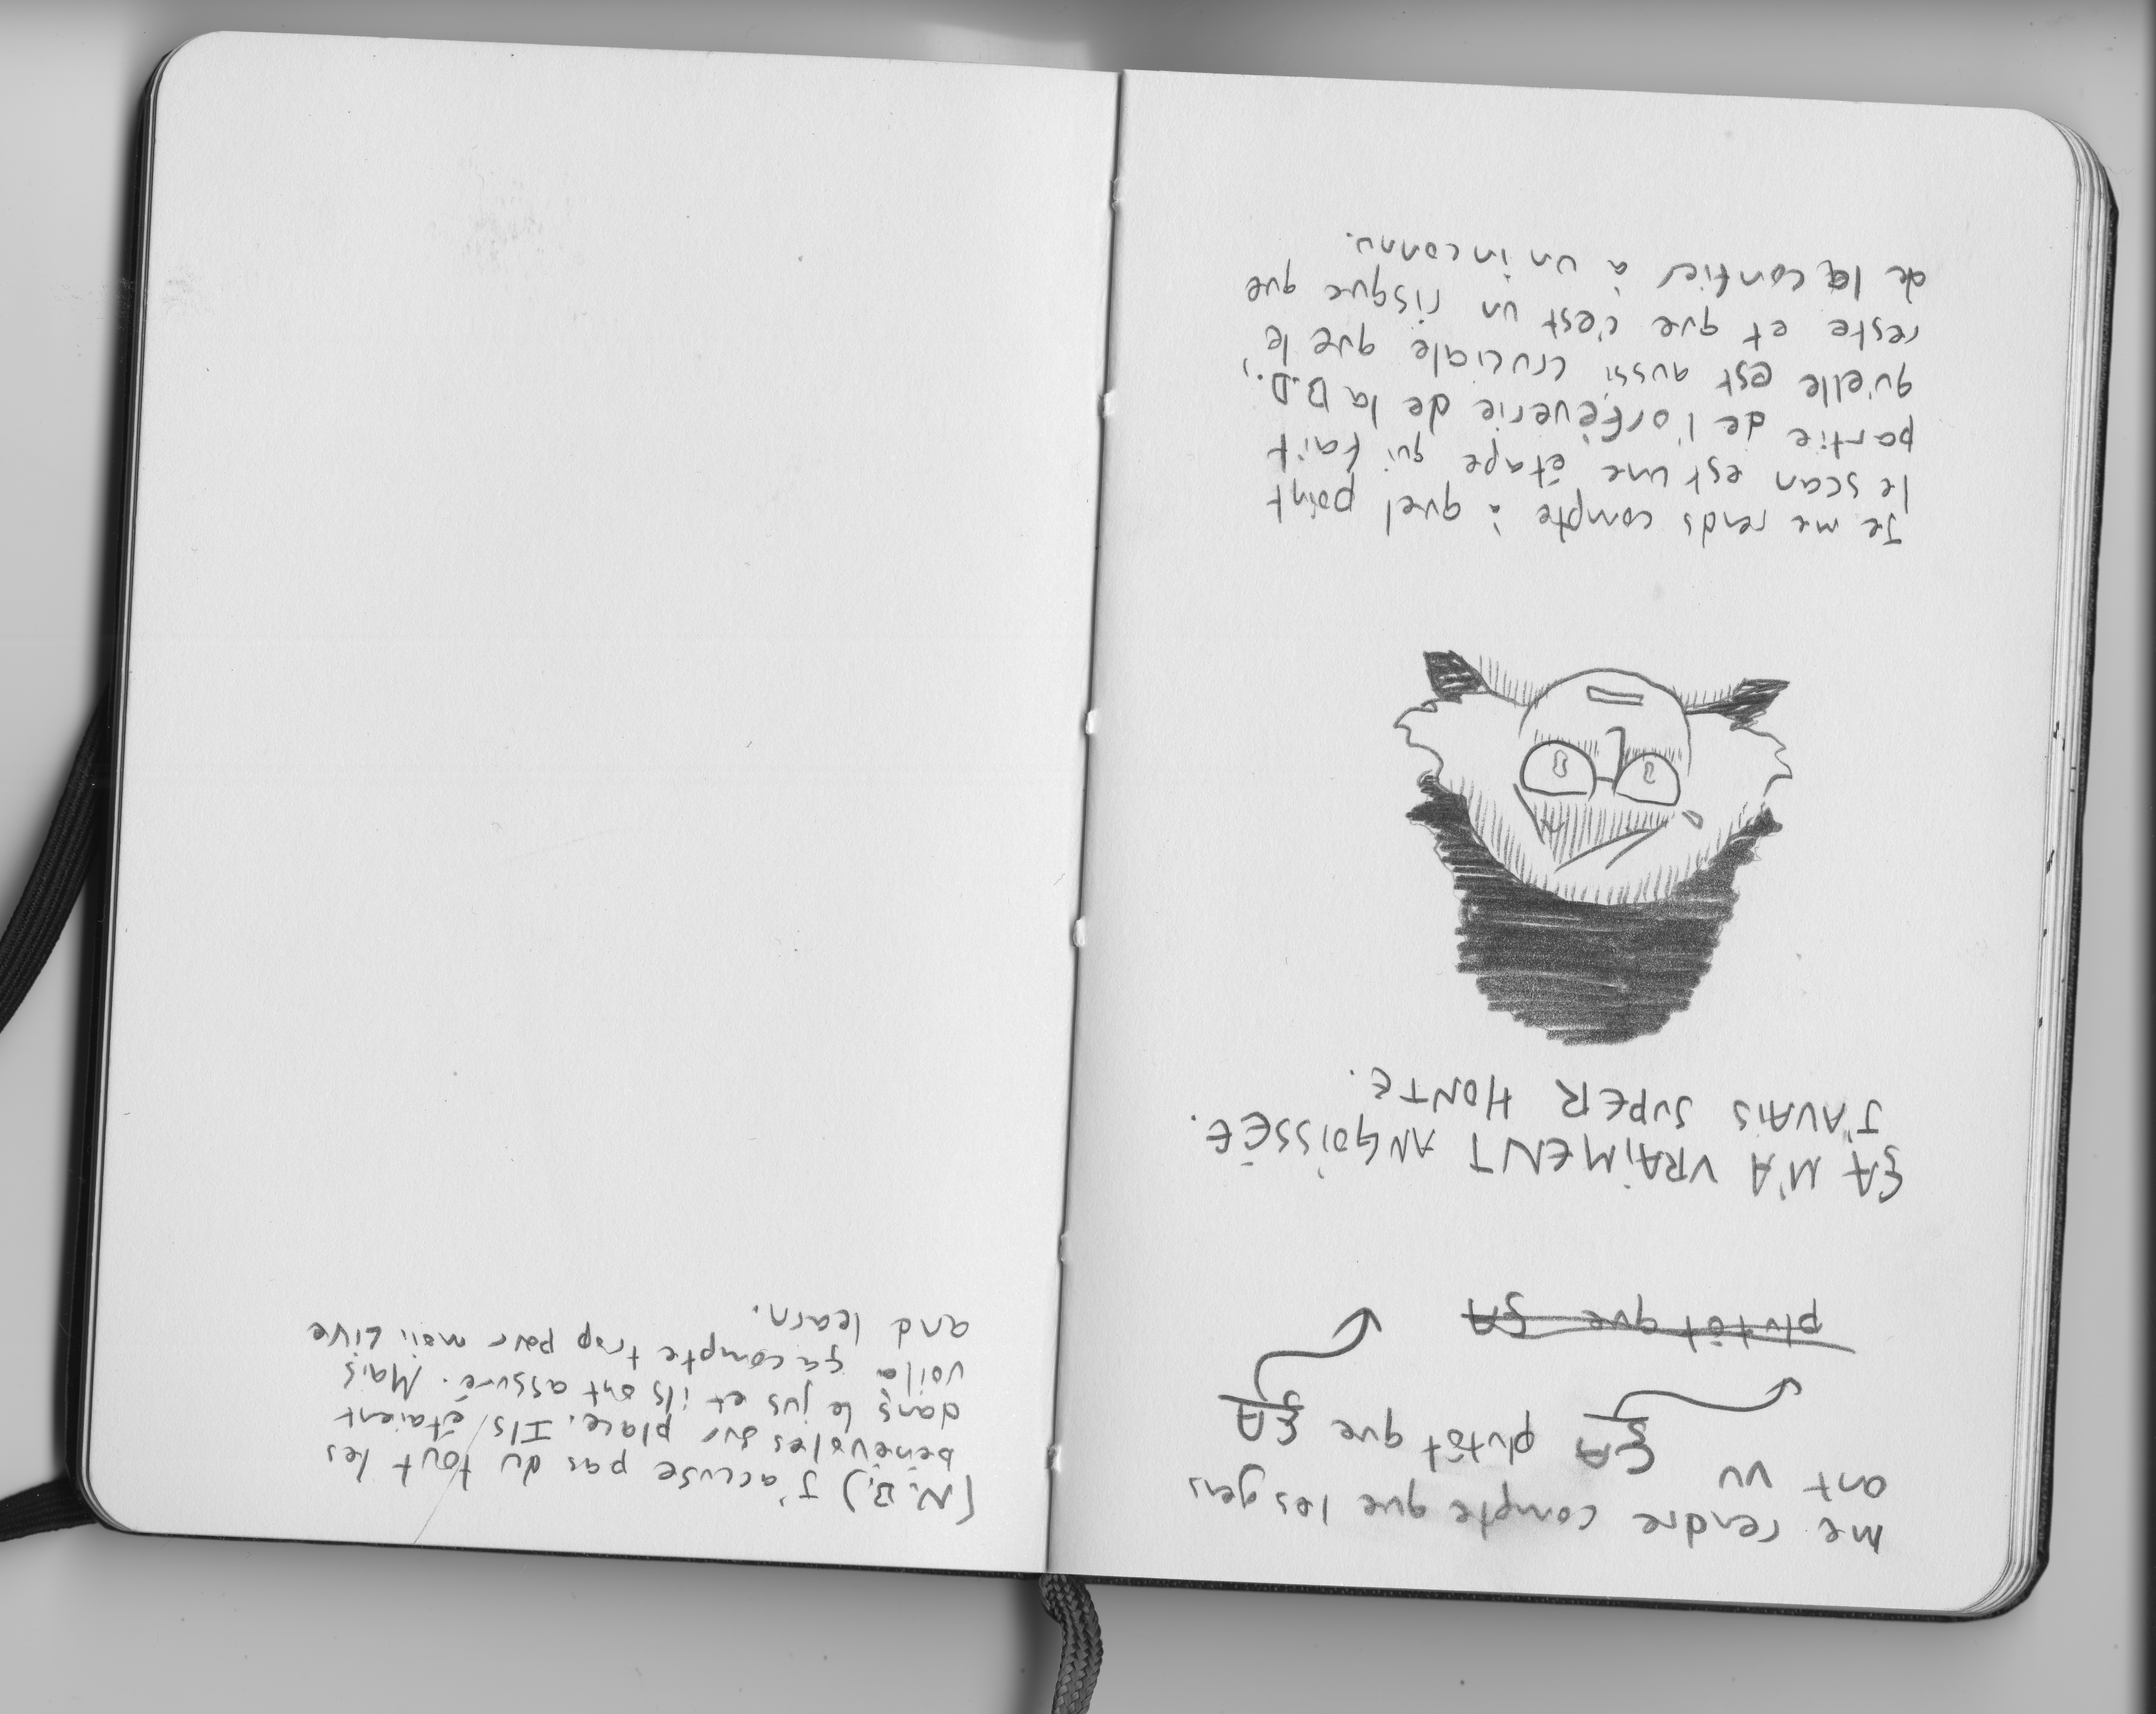 me rendre compte que les gens
ont vu ÇA plutôt que ÇA
plutôt que ÇA
ÇA M'A VRAIMENT ANGOISSÉE.
J'AVAIS SUPER HONTE.
Je me rends compte à quel point
le scan est une étape qui fait
partie de l'orfèverie de la B.D.,
qu'elle est aussi cruciale que le
reste et que c'est un risque que
de la confier à un inconnu.
(N.B.) J'accuse pas du tout les
bénévoles sur place. Ils étaient
dans le jus et ils ont assuré. Mais
voila ça compte trop pour moi! Live
and learn.